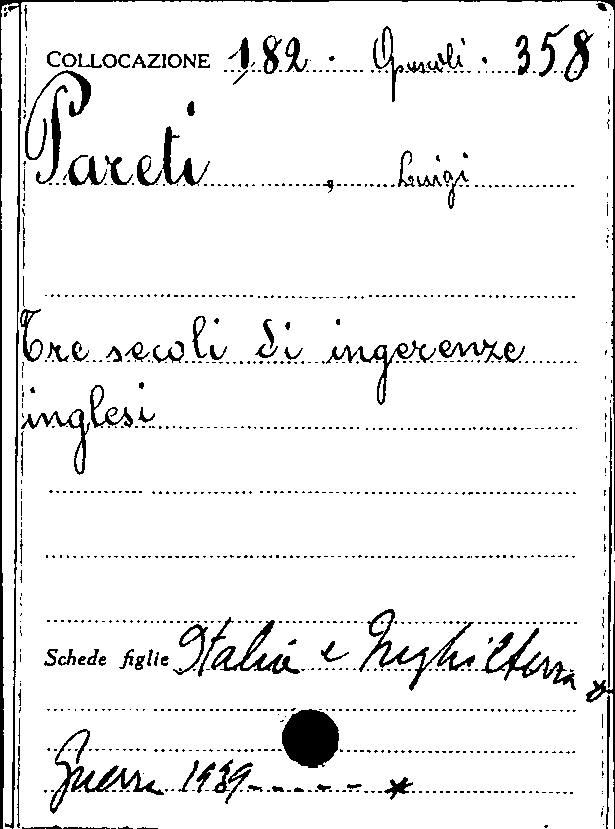 COLLOCAZIONE 182 . Opuscoli . 358
Pareti , Luigi
Tre secoli di ingerenze
inglesi
Schede figlie Italia e Inghilterra *
Guerra 1939----- *